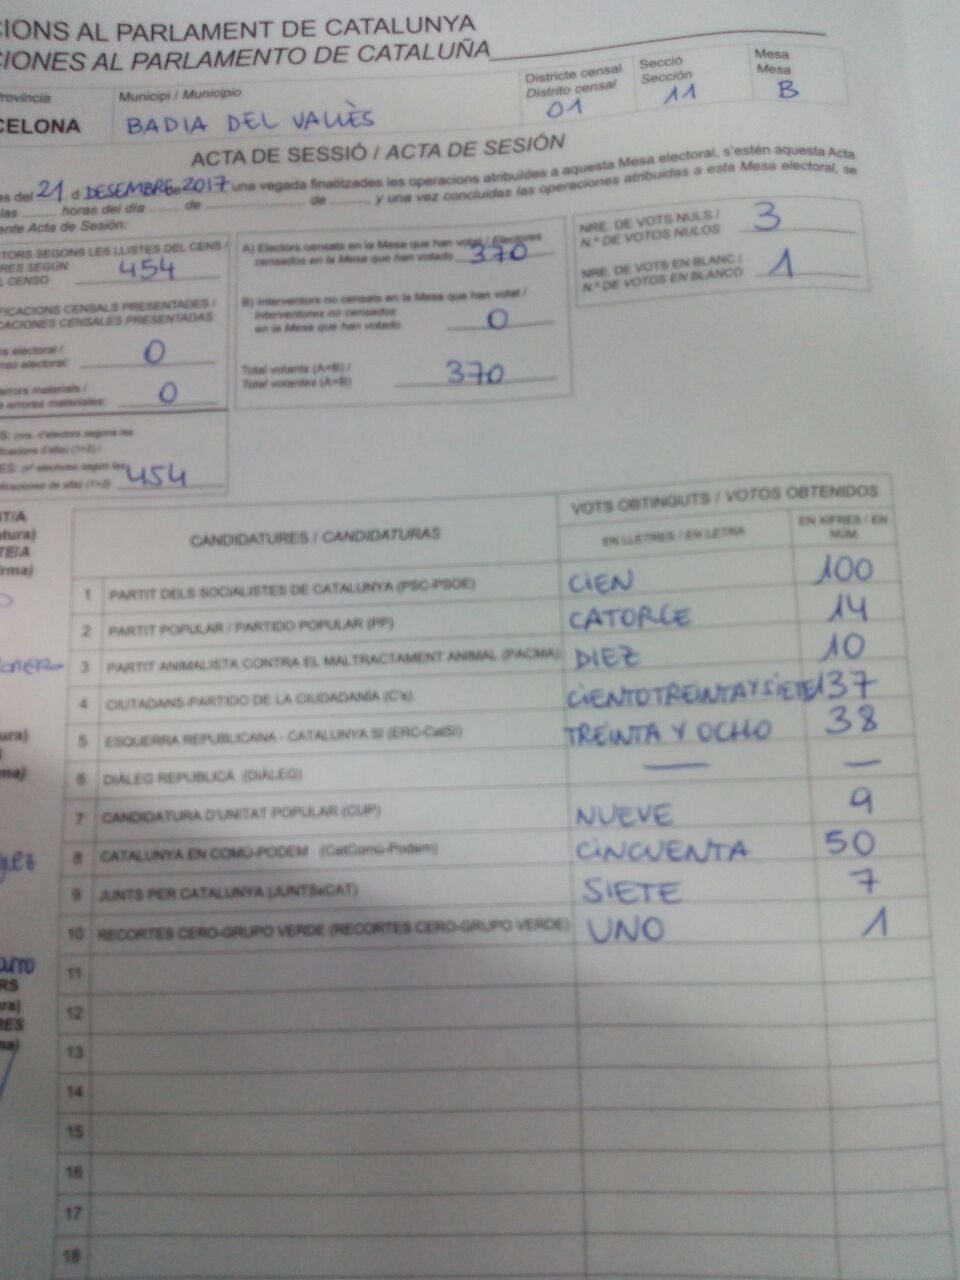 CIONS AL PARLAMENT DE CATALUNYA
CIONES AL PARLAMENTO DE CATALUÑA
rovíncia Municipi / Municipio Districte censal Secció Mesa
Distrito censal Sección Mesa
CELONA BADIA DEL VALLÈS 01 11 B
ACTA DE SESSIÓ / ACTA DE SESIÓN
es del 21 d DESEMBRE de 2017 una vegada finalitzades les operacions atribuïdes a aquesta Mesa electoral, s'estén aquesta Acta
las ........ horas del día ........ de ........ de ........, y una vez concluidas las operaciones atribuidas a esta Mesa electoral, se
ente Acta de Sesión:
TORS SEGONS LES LLISTES DEL CENS /
RES SEGÚN
L CENSO 454
FICACIONS CENSALS PRESENTADES /
CACIONES CENSALES PRESENTADAS
s electoral /
nso electoral: 0
errors materials /
e errores materiales: 0
S: (nre. d'electors segons les
ificacions d'alta) (1+2) /
ES: (nº electores según las
ificaciones de alta) (1+2) 454
A) Electors censats en la Mesa que han votat / Electores
censados en la Mesa que han votado 370
B) Interventors no censats en la Mesa que han votat /
Interventores no censados
en la Mesa que han votado 0
Total votants (A+B) /
Total votantes (A+B) 370
NRE. DE VOTS NULS /
N.º DE VOTOS NULOS 3
NRE. DE VOTS EN BLANC /
N.º DE VOTOS EN BLANCO 1
CANDIDATURES / CANDIDATURAS VOTS OBTINGUTS / VOTOS OBTENIDOS
EN LLETRES / EN LETRA EN XIFRES / EN NÚM.
1 PARTIT DELS SOCIALISTES DE CATALUNYA (PSC-PSOE) CIEN 100
2 PARTIT POPULAR / PARTIDO POPULAR (PP) CATORCE 14
3 PARTIT ANIMALISTA CONTRA EL MALTRACTAMENT ANIMAL (PACMA) DIEZ 10
4 CIUTADANS-PARTIDO DE LA CIUDADANÍA (C's) CIENTO TREINTA Y SIETE 137
5 ESQUERRA REPUBLICANA - CATALUNYA SÍ (ERC-CatSí) TREINTA Y OCHO 38
6 DIÀLEG REPUBLICÀ (DIÀLEG) — —
7 CANDIDATURA D'UNITAT POPULAR (CUP) NUEVE 9
8 CATALUNYA EN COMÚ-PODEM (CatComú-Podem) CINCUENTA 50
9 JUNTS PER CATALUNYA (JUNTSxCAT) SIETE 7
10 RECORTES CERO-GRUPO VERDE (RECORTES CERO-GRUPO VERDE) UNO 1
11
12
13
14
15
16
17
18